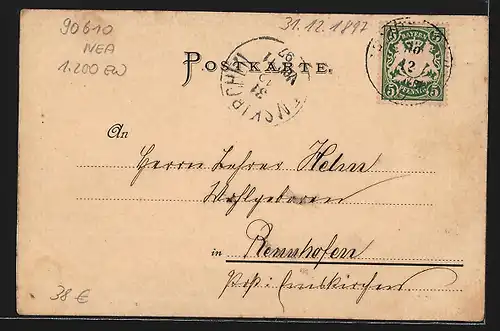 90610
NEA
1.200 EW
31.12.1897
POSTKARTE.
BAYERN
5 5
PFENNIG
EMSKIRCHEN
31
12
97
An
Herrn Lehrer Helm
Wohlgeboren
in Rennhofen
Post: Emskirchen
38 €